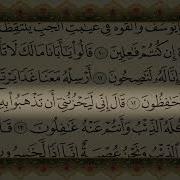 يُوسُفَ وَأَلْقُوهُ فِى غَيَٰبَتِ ٱلْجُبِّ يَلْتَقِطْهُ
إِن كُنتُمْ فَٰعِلِينَ ١٠ قَالُوا۟ يَٰٓأَبَانَا مَالَكَ لَا
وَإِنَّا لَهُۥ لَنَٰصِحُونَ ١١ أَرْسِلْهُ مَعَنَا غَدًا يَرْتَعْ
لَحَٰفِظُونَ ١٢ قَالَ إِنِّى لَيَحْزُنُنِىٓ أَن تَذْهَبُوا۟ بِهِۦ
ٱلذِّئْبُ وَأَنتُمْ عَنْهُ غَٰفِلُونَ ١٣
ٱلذِّئْبُ وَنَحْنُ عُصْبَةٌ إِنَّآ إِذًا لَّخَٰسِرُونَ